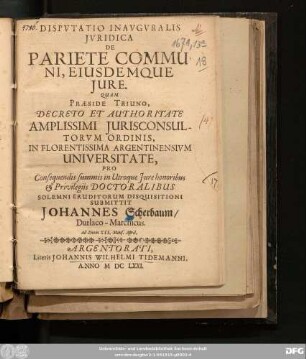 DISPVTATIO INAVGVRALIS
JVRIDICA
DE
PARIETE COMMU
NI, EIUSDEMQUE
JURE.
QUAM
PRÆSIDE TRIUNO,
DECRETO ET AUTHORITATE
AMPLISSIMI JURISCONSUL-
TORVM ORDINIS,
IN FLORENTISSIMA ARGENTINENSIVM
UNIVERSITATE,
PRO
Consequendis summis in Utroque Jure honoribus
& Privilegiis DOCTORALIBUS
SOLEMNI ERUDITORUM DISQUISITIONI
SUBMITTIT
JOHANNES Scherbaum/
Durlaco-Marchicus.
ARGENTORATI,
Literis JOHANNIS WILHELMI TIDEMANNI.
ANNO M DC LXXI.
1671,133
18
17
DFG